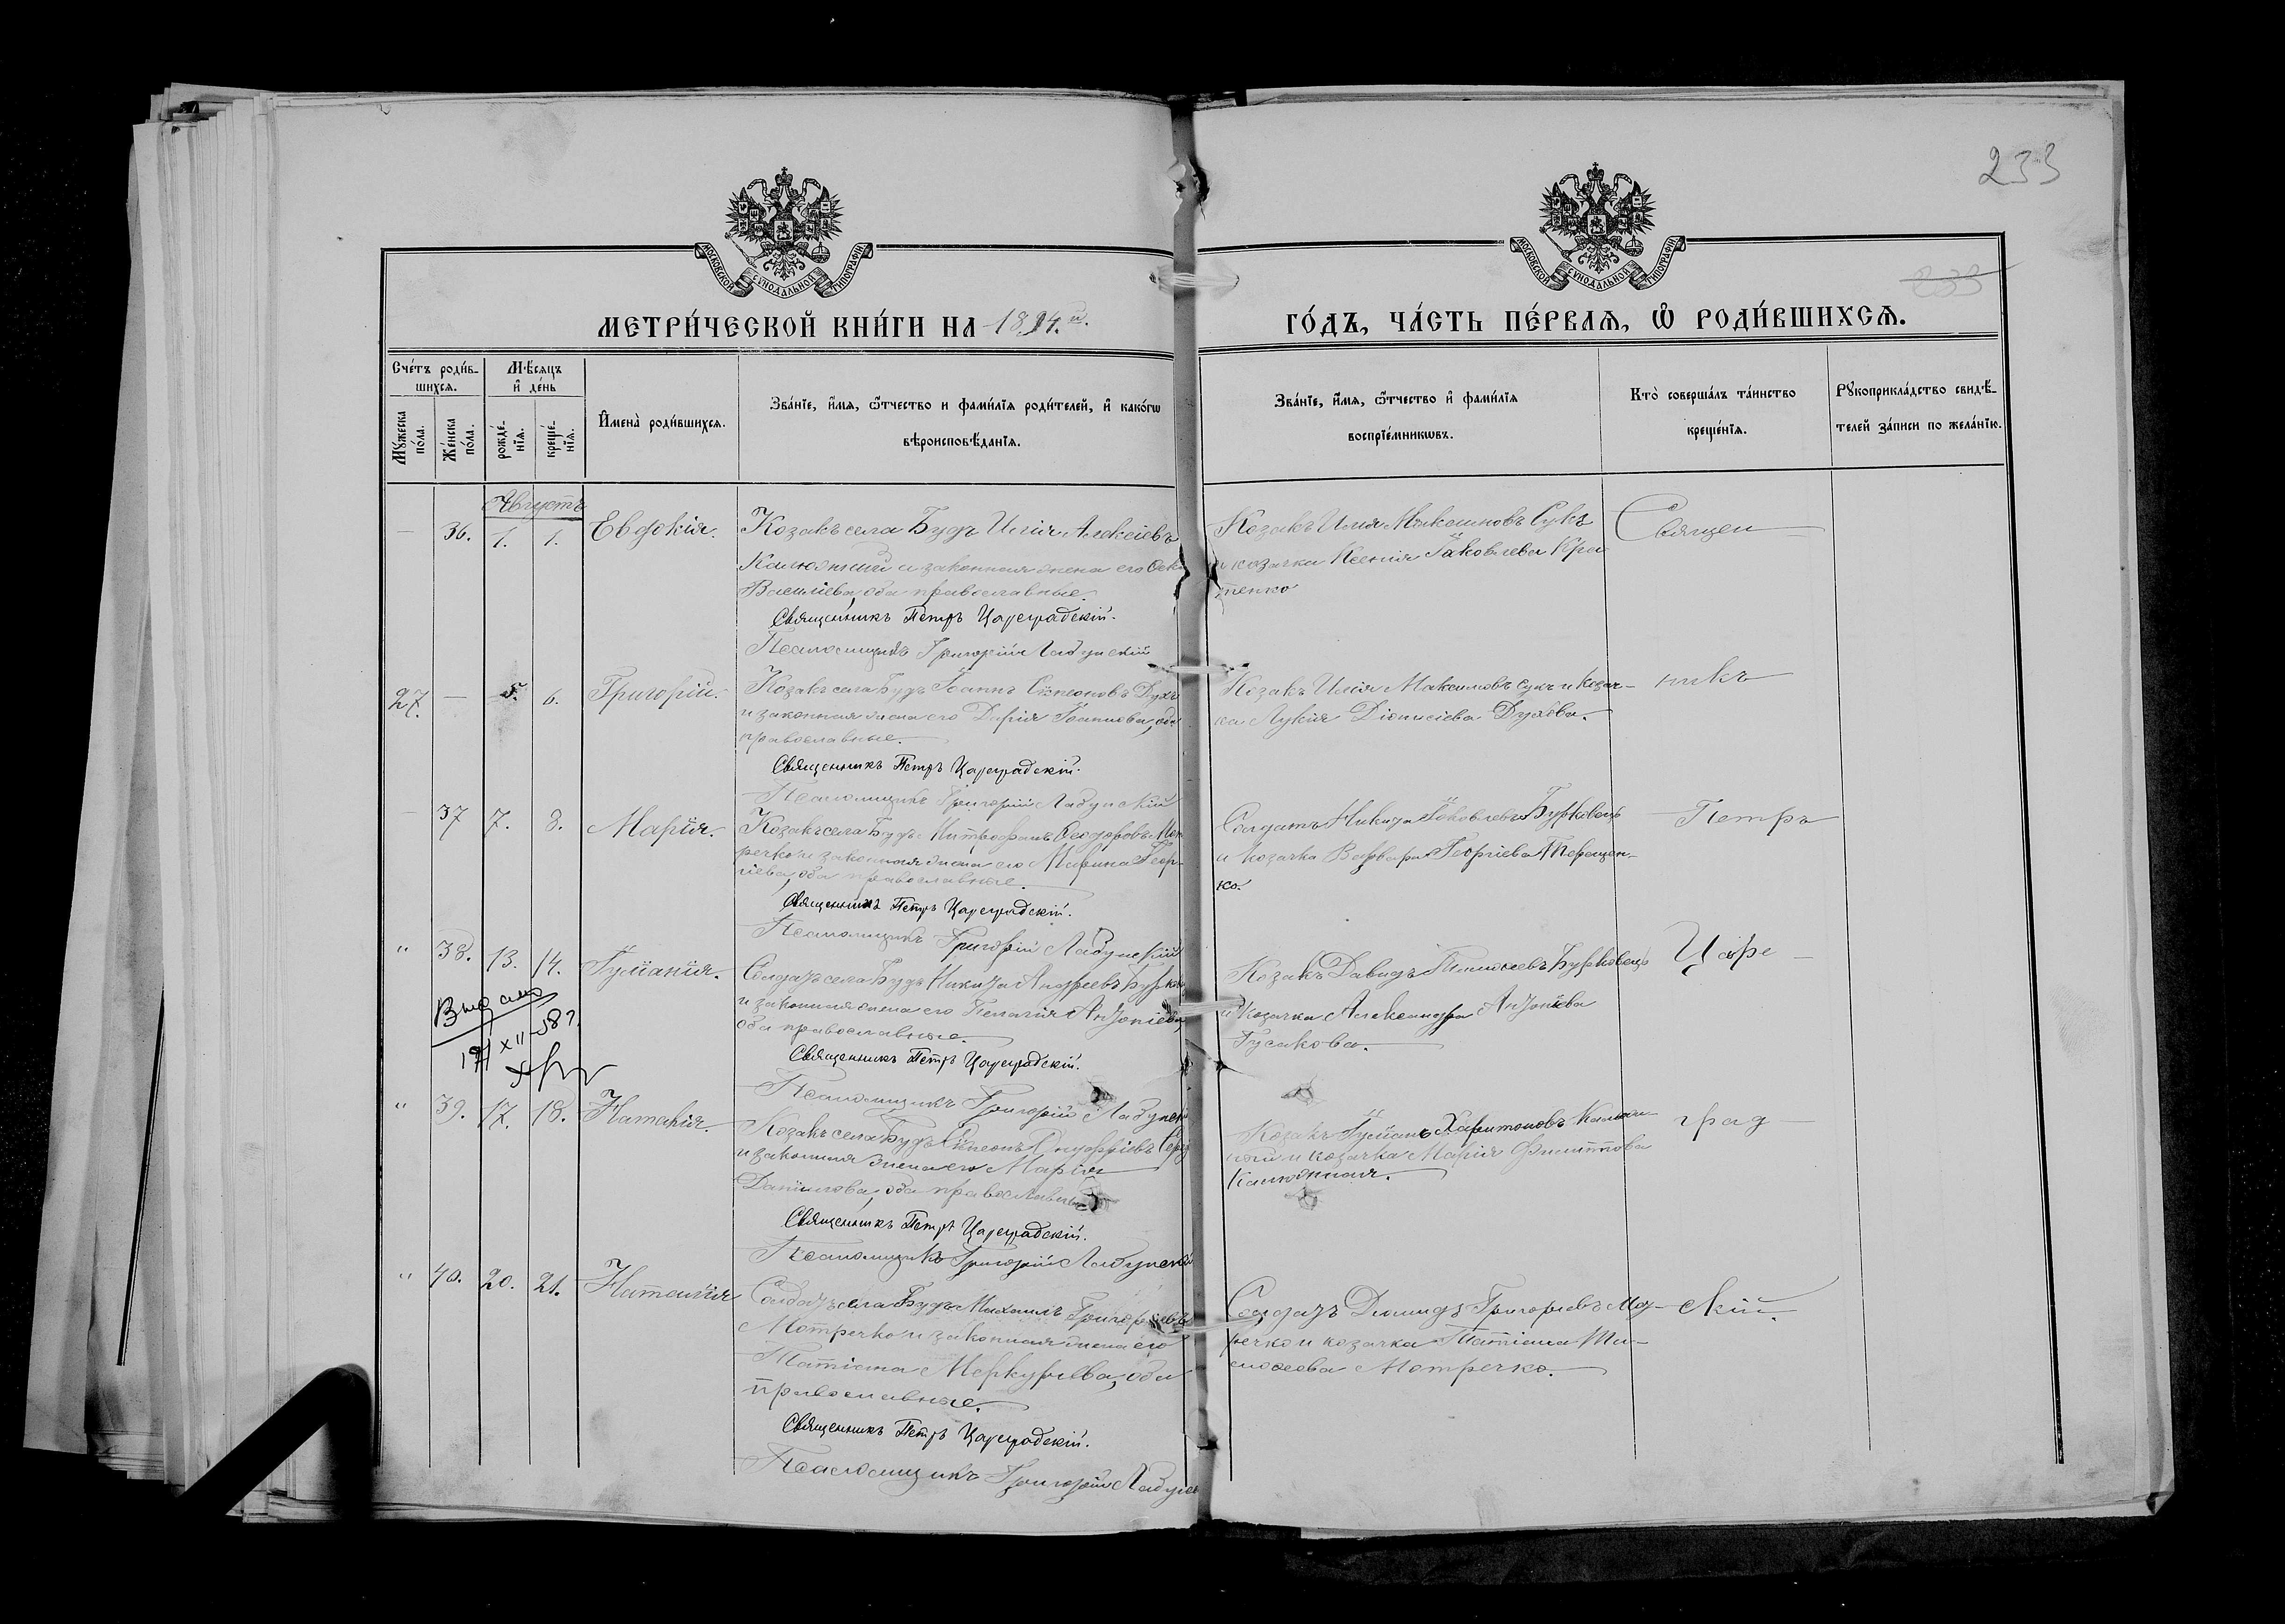 233
233
МОСКОВСКОЙ СѴНОДАЛЬНОЙ ТИПОГРАФІИ
МОСКОВСКОЙ СѴНОДАЛЬНОЙ ТИПОГРАФІИ
МЕТРИ́ЧЕСКОЙ КНИ́ГИ НА 1894.й
ГО́ДЪ, ЧА́СТЬ ПЕ́РВАѦ, Ѡ҆ РОДИ́ВШИХСѦ.
Сче́тъ роди́в-
шихсѧ.
Мꙋ́жеска
по́ла.
Же́нска
по́ла.
Мѣ́сѧцъ
и҆ де́нь
рожде́-
нїѧ.
креще́-
нїѧ.
И҆мена̀ роди́вшихсѧ.
Зва́нїе, и҆́мѧ, ѻ҆́тчество и фами́лїѧ роди́телей, и҆ како́гѡ
вѣроисповѣ́данїѧ.
Зва́нїе, и҆́мѧ, ѻ҆́тчество и҆ фами́лїѧ
воспрїе́мникѡвъ.
Кто̀ соверша́лъ та́инство
креще́нїѧ.
Рꙋкоприкла́дство свидѣ́-
телей за́писи по жела́нїю.
Августъ
— 36. 1. 1. Евдокія.
Козакъ села Будъ Илія Алексіевъ
Калюжный и законная жена его
Василіева, оба православные.
Священникъ Петръ Цареградскій.
Псаломщикъ Григорій Лабунскій
Козакъ Илія Максимовъ Сукъ
и козачка Ксенія Іаковлева Кра
тенко
Священ
27. — 5. 6. Григорій.
Козакъ села Будъ Іоаннъ Сѵмеоновъ
и законная жена его Дарія Іоаннова, оба
православные.
Священникъ Петръ Цареградскій.
Псаломщикъ Григорій Лабунскій
Козакъ Илія Максимовъ Сукъ и козач-
ка Лукія Діонисіева Духова.
никъ
— 37 7. 8. Марія.
Козакъ села Будъ Митрофанъ Ѳеодоровъ Мот
речко и законная жена его Марина Геор-
гіева, оба православные.
Священникъ Петръ Цареградскій.
Псаломщикъ Григорій Лабунскій
Солдатъ Никита Іаковлевъ Бурковецъ
и козачка Варвара Георгіева Терещен-
ко.
Петръ
" 38. 13. 14. Іуліанія.
Солдатъ села Будъ Никита Андреевъ Бурков
и законная жена его Пелагія Антоніева,
оба православные.
Священникъ Петръ Цареградскій.
Псаломщикъ Григорій Лабунскій
Козакъ Давидъ Тимоѳеевъ Бурковецъ
и козачка Александра Антоніева
Гусакова.
Царе
Выдано
" 39. 17. 18. Наталія.
Козакъ села Будъ Сѵмеонъ Онуфріевъ
и законная жена его Марія
Даніилова, оба православные
Священникъ Петръ Цареградскій.
Псаломщикъ Григорій Лабунскій
Козакъ Іуліанъ Харитоновъ Калюж
ный и козачка Марія Филиппова
Калюжная.
град
" 40. 20. 21. Наталія
Солдатъ села Будъ Михаилъ Григорьевъ
Мотречко и законная жена его
Татіана Меркурьева, оба
православные.
Священникъ Петръ Цареградскій.
Псаломщикъ Григорій Лабунс
Солдатъ Діомидъ Григорьевъ Мот-
речко и козачка Татіана Ти-
моѳеева Мотречко.
скій.